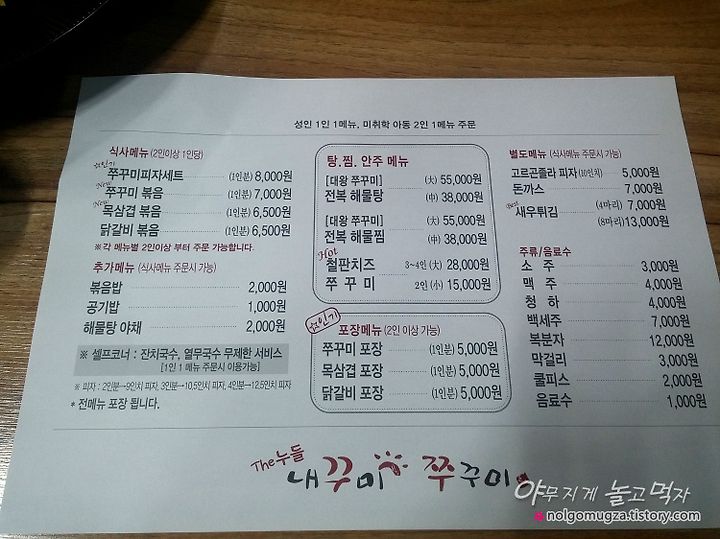 성인 1인 1메뉴, 미취학 아동 2인 1메뉴 주문
식사메뉴 (2인이상 1인당)
인기
쭈꾸미피자세트 (1인분) 8,000원
New
쭈꾸미 볶음 (1인분) 7,000원
New
목삼겹 볶음 (1인분) 6,500원
닭갈비 볶음 (1인분) 6,500원
※각 메뉴별 2인이상 부터 주문 가능합니다.
추가메뉴 (식사메뉴 주문시 가능)
볶음밥 2,000원
공기밥 1,000원
해물탕 야채 2,000원
※ 셀프코너 : 잔치국수, 열무국수 무제한 서비스
[1인 1 메뉴 주문시 이용가능]
※ 피자 : 2인분→9인치 피자, 3인분→10.5인치 피자, 4인분→12.5인치 피자
* 전메뉴 포장 됩니다.
탕.찜.안주 메뉴
[대왕 쭈꾸미] (大) 55,000원
전복 해물탕 (中) 38,000원
[대왕 쭈꾸미] (大) 55,000원
전복 해물찜 (中) 38,000원
Hot
철판치즈 3~4인 (大) 28,000원
쭈꾸미 2인 (小) 15,000원
인기
포장메뉴 (2인 이상 가능)
쭈꾸미 포장 (1인분) 5,000원
목삼겹 포장 (1인분) 5,000원
닭갈비 포장 (1인분) 5,000원
별도메뉴 (식사메뉴 주문시 가능)
고르곤졸라 피자 (10인치) 5,000원
돈까스 7,000원
Best
새우튀김 (4마리) 7,000원
(8마리) 13,000원
주류/음료수
소 주 3,000원
맥 주 4,000원
청 하 4,000원
백세주 7,000원
복분자 12,000원
막걸리 3,000원
쿨피스 2,000원
음료수 1,000원
The누들
내꾸미 쭈꾸미
야무지게 놀고먹자
nolgomugza.tistory.com